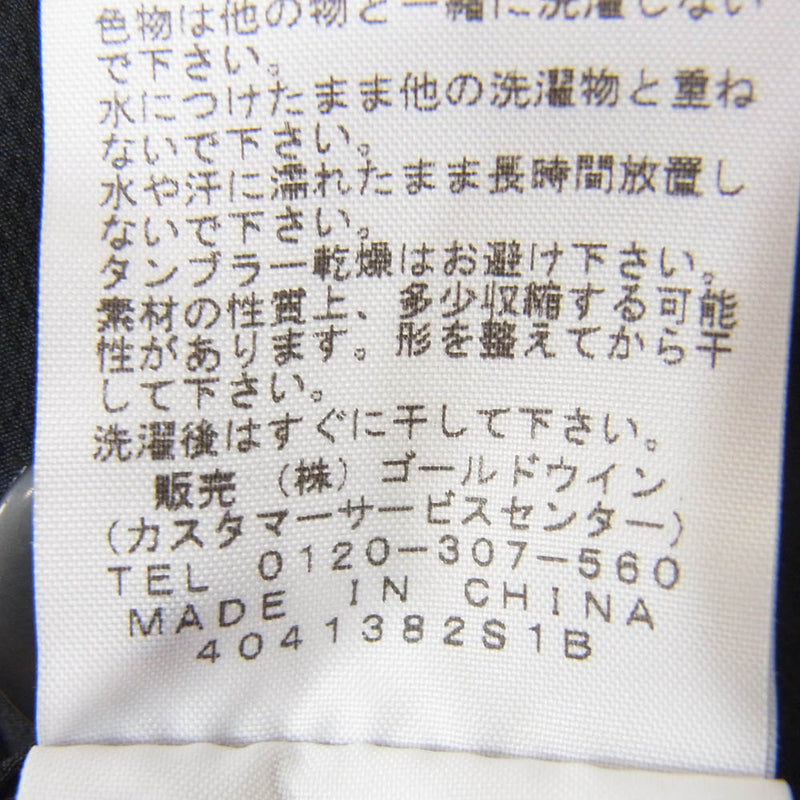 色物は他の物と一緒に洗濯しない
で下さい。
水につけたまま他の洗濯物と重ね
ないで下さい。
水や汗に濡れたまま長時間放置し
ないで下さい。
タンブラー乾燥はお避け下さい。
素材の性質上、多少収縮する可能
性があります。形を整えてから干
して下さい。
洗濯後はすぐに干して下さい。
販売 (株) ゴールドウイン
(カスタマーサービスセンター)
TEL 0120-307-560
MADE IN CHINA
4041382S1B